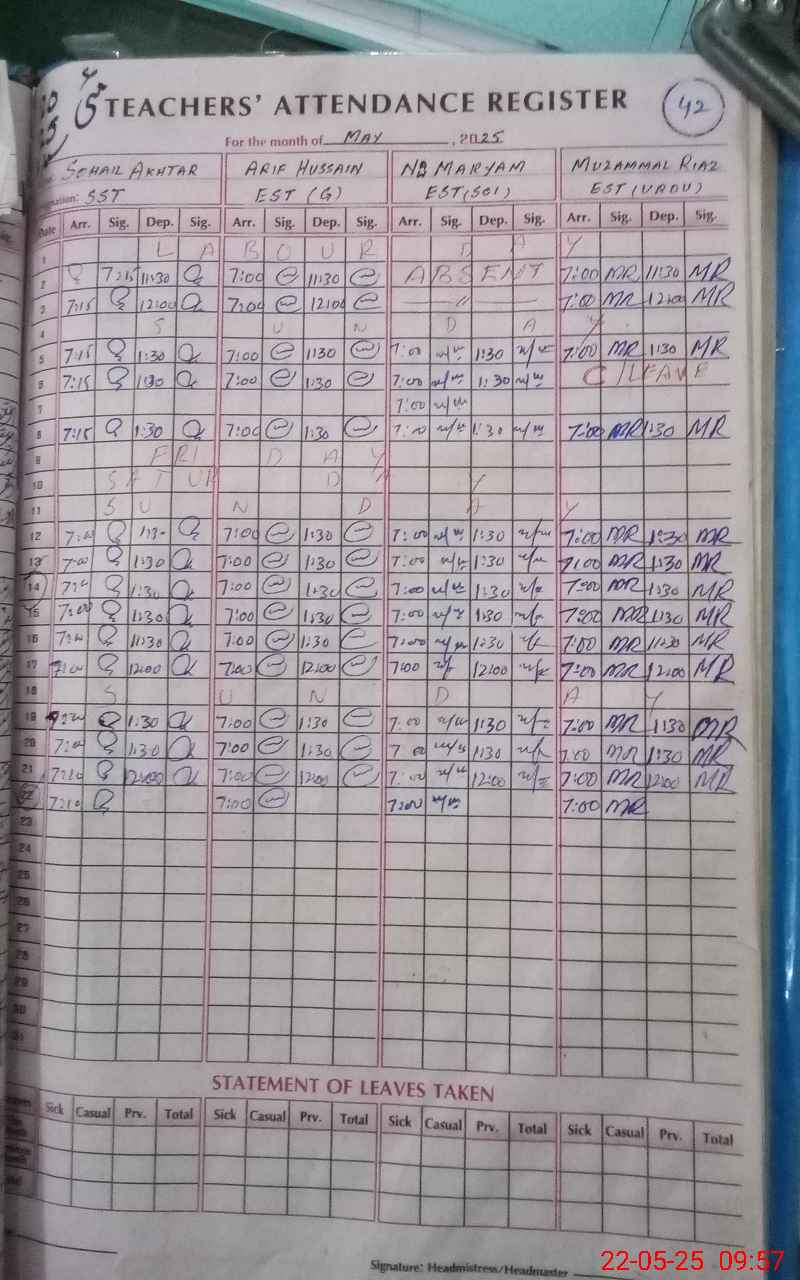 TEACHERS' ATTENDANCE REGISTER 42
For the month of MAY, 2025
SOHAIL AKHTAR ARIF HUSSAIN MARYAM MUZAMMAL RIAZ
nation: SST EST (G) EST (SCI) EST (URDU)
Date Arr. Sig. Dep. Sig. Arr. Sig. Dep. Sig. Arr. Sig. Dep. Sig. Arr. Sig. Dep. Sig.
1 L A B O U R D A Y
2 7:15 11:30 7:00 11:30 ABSENT 7:00 MR 11:30 MR
3 7:15 12:00 7:00 12:00 — 〃 — 7:00 MR 12:00 MR
4 S U N D A Y
5 7:15 1:30 7:00 1:30 7:00 1:30 7:00 MR 1:30 MR
6 7:15 1:30 7:00 1:30 7:00 1:30 C/LEAVE
7 7:00
8 7:15 1:30 7:00 1:30 7:00 1:30 7:00 MR 1:30 MR
9 F R I D A Y
10 S A T U R D A Y
11 S U N D A Y
12 7:00 1:30 7:00 1:30 7:00 1:30 7:00 MR 1:30 MR
13 7:00 1:30 7:00 1:30 7:00 1:30 7:00 MR 1:30 MR
14 7:00 1:30 7:00 1:30 7:00 1:30 7:00 MR 1:30 MR
15 7:00 1:30 7:00 1:30 7:00 1:30 7:00 MR 1:30 MR
16 7:00 11:30 7:00 11:30 7:00 11:30 7:00 MR 11:30 MR
17 7:00 12:00 7:00 12:00 7:00 12:00 7:00 MR 12:00 MR
18 S U N D A Y
19 7:00 1:30 7:00 1:30 7:00 1:30 7:00 MR 1:30 MR
20 7:00 1:30 7:00 1:30 7:00 1:30 7:00 MR 1:30 MR
21 7:10 12:00 7:00 12:00 7:00 12:00 7:00 MR 12:00 MR
22 7:10 7:00 7:00 7:00 MR
23
24
25
26
27
28
29
30
31
STATEMENT OF LEAVES TAKEN
Sick Casual Prv. Total Sick Casual Prv. Total Sick Casual Prv. Total Sick Casual Prv. Total
Signature: Headmistress/Headmaster
22-05-25 09:57